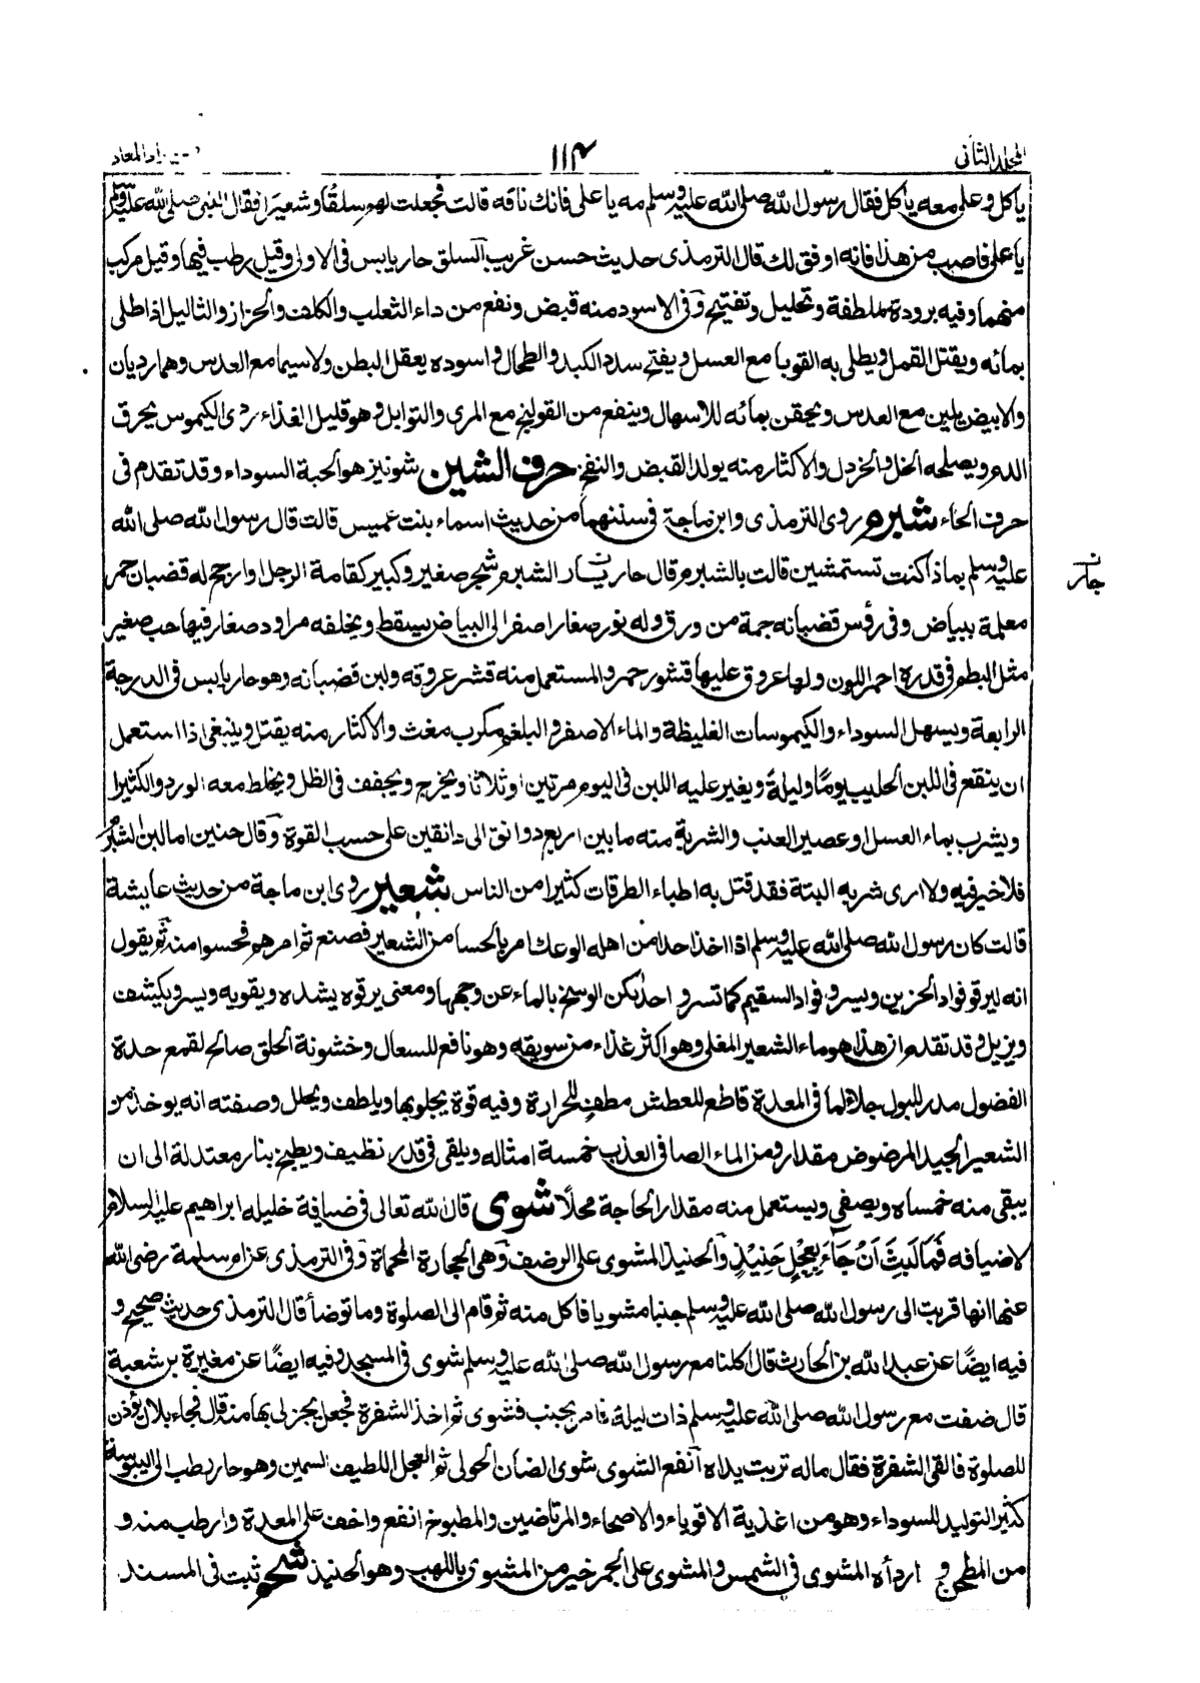 المجلد الثاني ١١٤ زاد المعاد
ياكل وعلى معه ياكل فقال رسول الله صلى الله عليه وسلم مه يا على فانك ناقه قالت فجعلت لهم سلقًا وشعيرا فقال النبى صلى الله عليه وسلم
يا على فاصب من هذا فانه اوفق لك قال الترمذى حديث حسن غريب السلق حار يابس فى الاولى وقيل رطب فيها وقيل مركب
منهما وفيه برودة ملطفة وتحليل وتفتيح وفى الاسود منه قبض ونفع من داء الثعلب والكلف والحزاز والثاليل اذا طلى
بمائه ويقتل القمل ويطلى به القوبا مع العسل ويفتح سدد الكبد والطحال واسوده يعقل البطن ولا سيما مع العدس وهما رديان
والابيض يلين مع العدس ويحقن بمائه للاسهال وينفع من القولنج مع المرى والتوابل وهو قليل الغذاء ردى الكيموس يحرق
الدم ويصلحه الخل والخردل والاكثار منه يولد القبض والنفخ حرف الشين شونيز هو الحبة السوداء وقد تقدم فى
حرف الحاء شبرم روى الترمذى وابن ماجة فى سننهما من حديث اسماء بنت عميس قالت قال رسول الله صلى الله
عليه وسلم بماذا كنت تستمشين قالت بالشبرم قال حار يار الشبرم شجر صغير وكبير كقامة الرجل او ارجح له قضبان حمر
جار
معلمة ببياض وفى رؤس قضبانه جمة من ورق وله نور صغار اصفر الى البياض يسقط ويخلفه مراود صغار فيها حب صغير
مثل البطم فى قدره احمر اللون ولها عروق عليها قشور حمر والمستعمل منه قشر عروقه ولبن قضبانه وهو حار يابس فى الدرجة
الرابعة ويسهل السوداء والكيموسات الغليظة والماء الاصفر والبلغم مكرب مغث والاكثار منه يقتل وينبغى اذا استعمل
ان ينقع فى اللبن الحليب يومًا وليلةً ويغير عليه اللبن فى اليوم مرتين او ثلاثا ويخرج ويجفف فى الظل ويخلط معه الورد والكثيرا
ويشرب بماء العسل او عصير العنب والشربة منه ما بين اربع دوانق الى دانقين على حسب القوة وقال حنين اما لبن الشبرم
فلا خير فيه ولا ارى شربه البتة فقد قتل به اطباء الطرقات كثيرا من الناس شعير روى ابن ماجة من حديث عايشة
قالت كان رسول الله صلى الله عليه وسلم اذا اخذ احدا من اهله الوعك امر بالحسا من الشعير فصنع ثم امرهم فحسوا منه ثم يقول
انه ليرتو فواد الحزين ويسرو فواد السقيم كما تسرو احداكن الوسخ بالماء عن وجهها ومعنى يرتوه يشده ويقويه ويسرو يكشف
ويزيل وقد تقدم ان هذا هو ماء الشعير المغلى وهو اكثر غذاء من سويقه وهو نافع للسعال وخشونة الحلق صالح لقمع حدة
الفضول مدر للبول جلاء لما فى المعدة قاطع للعطش مطفئ للحرارة وفيه قوة يجلو بها ويلطف ويحلل وصفته انه يوخذ من
الشعير الجيد المرضوض مقدار ومن الماء الصافى العذب خمسة امثاله ويلقى فى قدر نظيف ويطبخ بنار معتدلة الى ان
يبقى منه خمساه ويصفى ويستعمل منه مقدار الحاجة محلًا شوى قال الله تعالى فى ضيافة خليله ابراهيم عليه السلام
لاضيافه فَمَا لَبِثَ اَنْ جَاءَ بِعِجْلٍ حَنِيْذٍ والحنيذ المشوى على الرضف وهى الحجارة المحماة وفى الترمذى عن ام سلمة رضى الله
عنها انها قربت الى رسول الله صلى الله عليه وسلم جنبا مشويا فاكل منه ثم قام الى الصلوة وما توضأ قال الترمذى حديث صحيح و
فيه ايضًا عن عبد الله بن الحارث قال اكلنا مع رسول الله صلى الله عليه وسلم شوى فى المسجد وفيه ايضًا عن مغيرة بن شعبة
قال ضفت مع رسول الله صلى الله عليه وسلم ذات ليلة فامر بجنب فشوى ثم اخذ الشفرة فجعل يجز لى بها منه قال فجاء بلال يؤذن
للصلوة فالقى الشفرة فقال ماله تربت يداه انفع الشوى شوى الضان الحولى ثم العجل اللطيف السمين وهو حار رطب الى اليبوسة
كثير التوليد للسوداء وهو من اغذية الاقوياء والاصحاء والمرتاضين والمطبوخ انفع واخف على المعدة وارطب منه و
من المطجن و اردأه المشوى فى الشمس والمشوى على الجمر خير من المشوى باللهب وهو الحنيذ شحم ثبت فى المسند